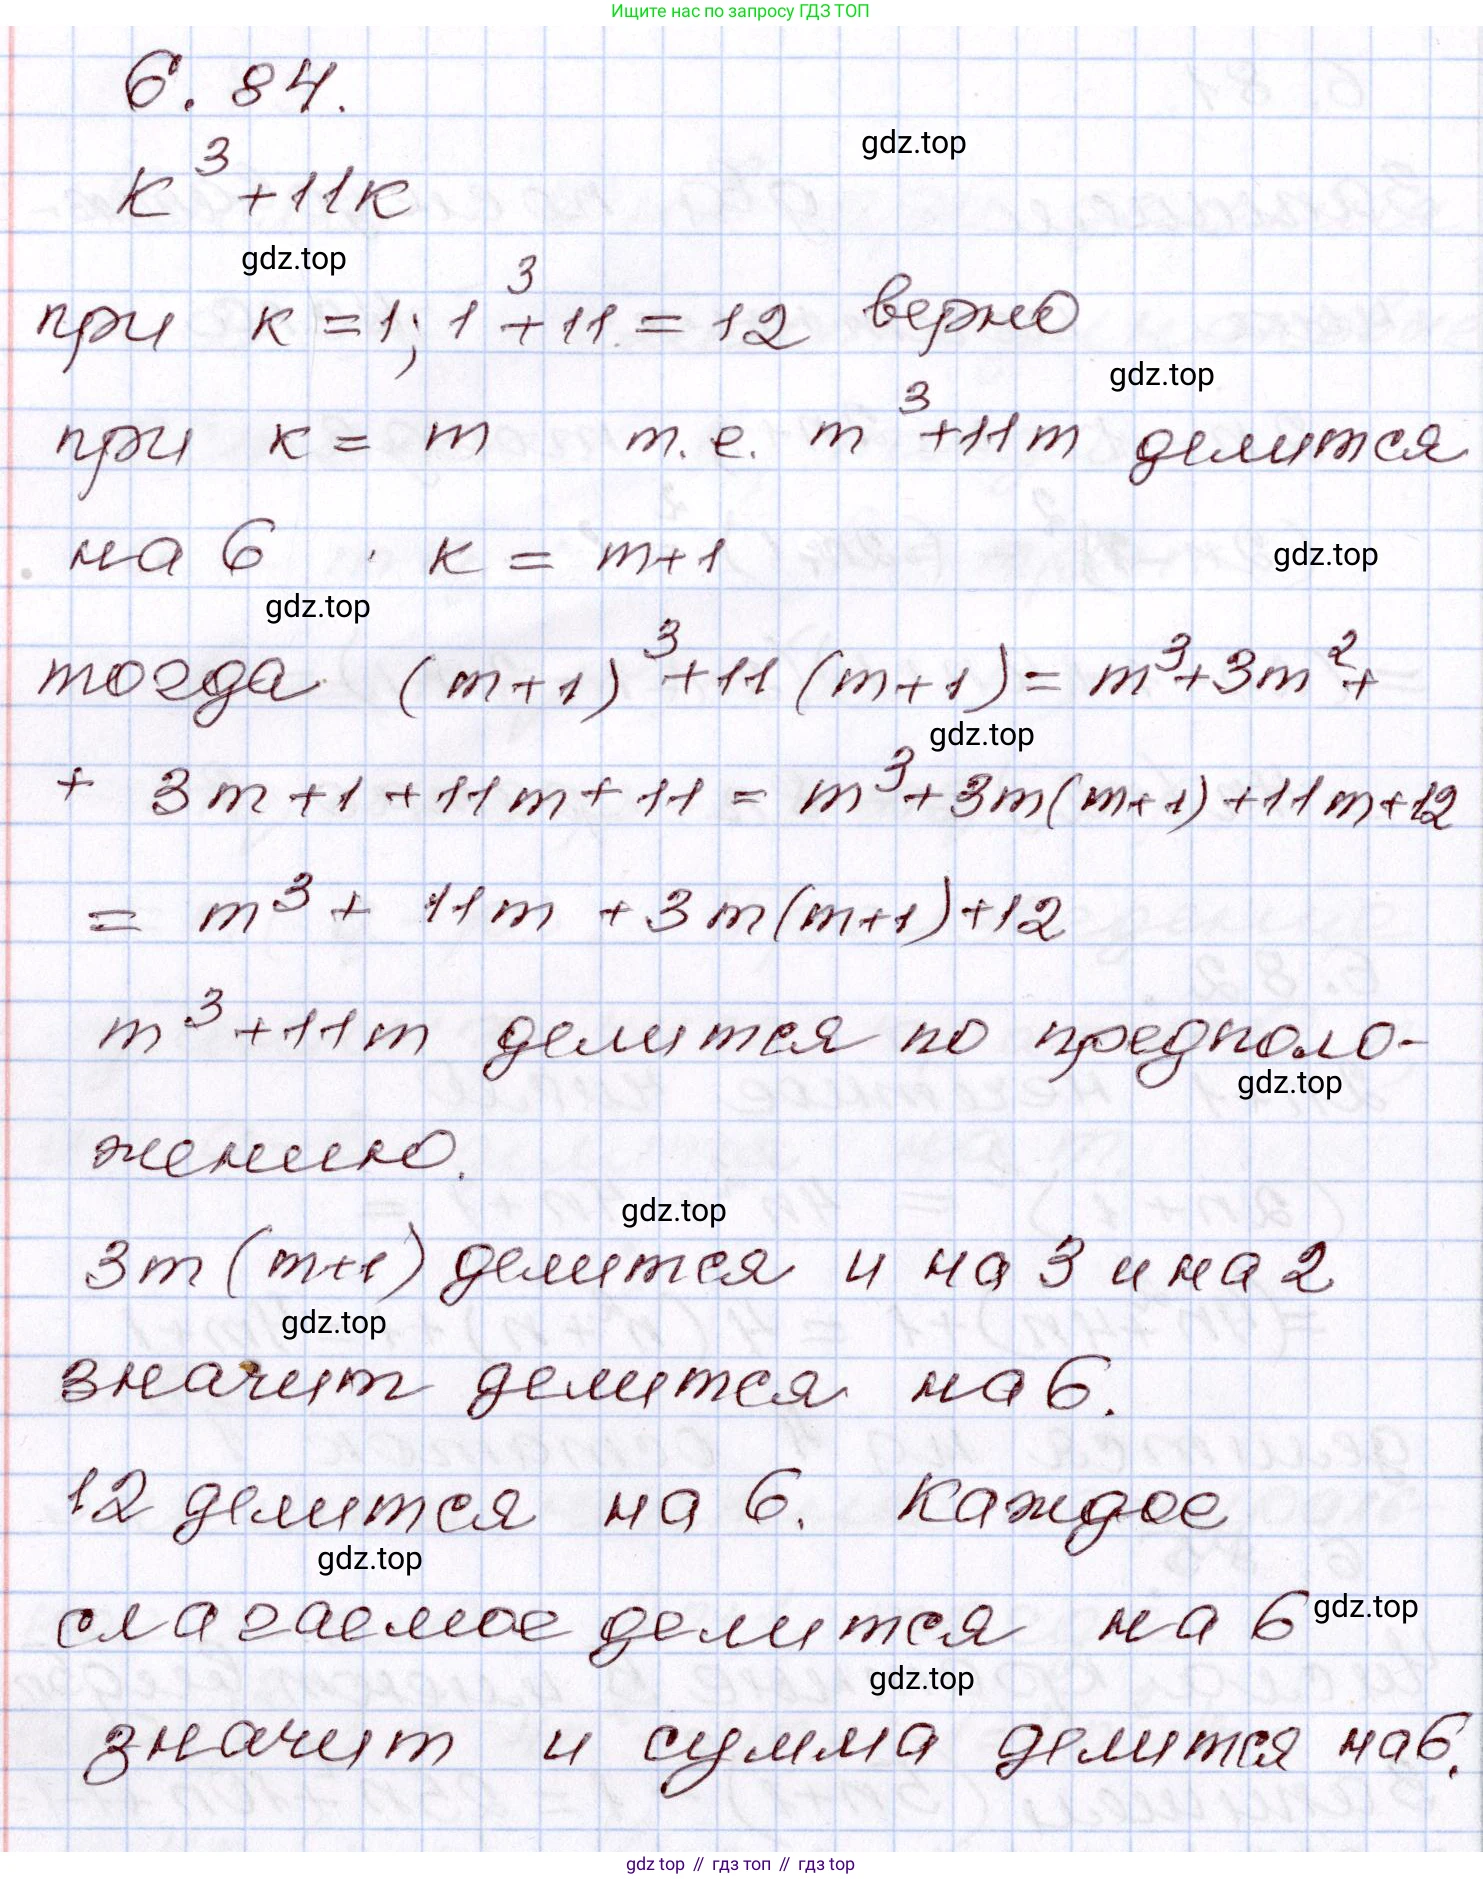 Ищите нас по запросу ГДЗ ТОП
6.84.
gdz.top
к³+11к
gdz.top
при к=1; 1³+11=12 верно
gdz.top
при к=m т.е. m³+11m делится
на 6 к=m+1
gdz.top
gdz.top
тогда (m+1)³+11(m+1)=m³+3m²+
gdz.top
+ 3m+1+11m+11=m³+3m(m+1)+11m+12
= m³+ 11m +3m(m+1)+12
m³+11m делится по предполо-
gdz.top
жению.
gdz.top
3m(m+1) делится и на 3 и на 2
gdz.top
значит делится на 6.
12 делится на 6. Каждое
gdz.top
слагаемое делится на 6
gdz.top
gdz.top
значит и сумма делится на 6.
gdz top // гдз топ // гдз top